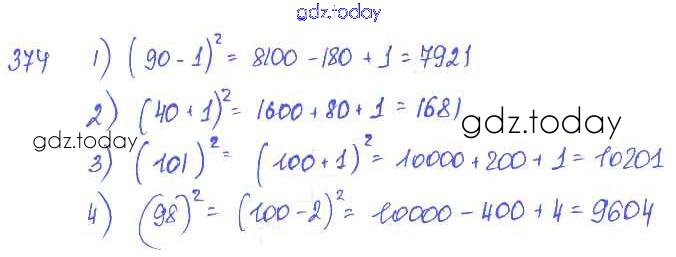 gdz.today
374 1) (90 - 1)² = 8100 - 180 + 1 = 7921
2) (40 + 1)² = 1600 + 80 + 1 = 1681
gdz.today
gdz.today
3) (101)² = (100 + 1)² = 10000 + 200 + 1 = 10201
4) (98)² = (100 - 2)² = 10000 - 400 + 4 = 9604